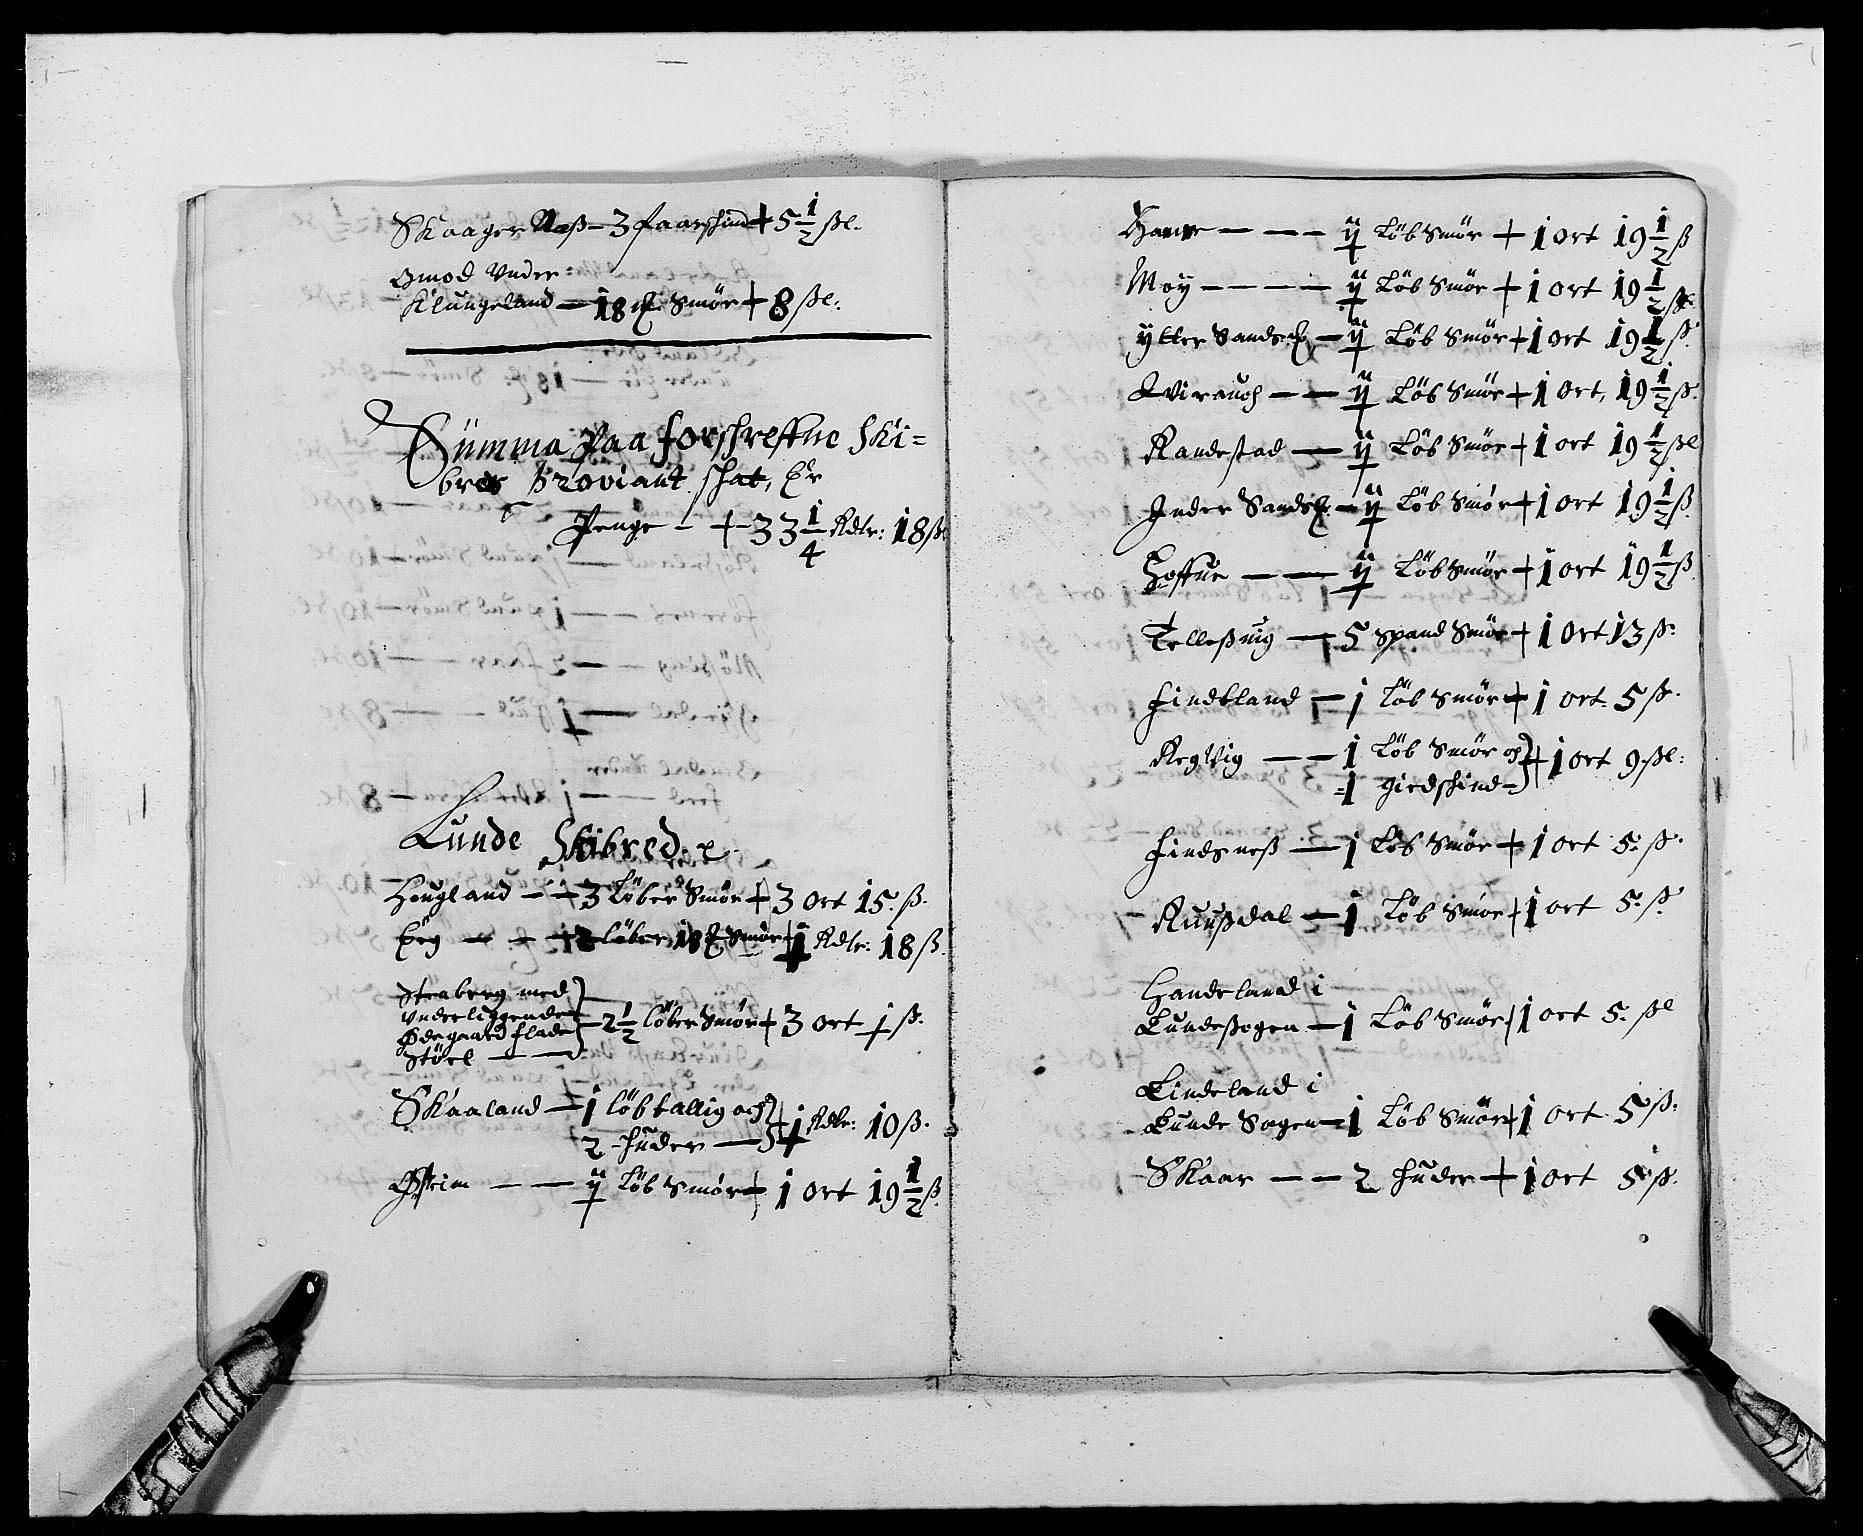 Skaager Næß – 3 faarskind + 5 1/2 ßl.
Omod Vnder
Klungeland – 18 ℔ Smör + 8 ßl:
Summa Paa forschreffne Ski=
bres Proviant schat, Er
Penge – + 33 1/4 Rdlr: 18 ß
Lunde Skibred: e
Hougland – – 3 Löber Smör + 3 ort 15. ß.
Eeg – – – 2 löber 18 ℔ Smör + 1 Rdlr: 18 ß.
Steaberg med
Vnderliggende
Ødegaard flade
Stöel – – – 2 1/2 löber Smör + 3 ort j ß.
Skaaland – 1 löb tallig och
2 huder – + 1 Rdlr: 10 ß.
Østrim – – ij löb Smör + 1 ort 19 1/2 ß
Hamr – – – ij Löb Smör + 1 ort 19 1/2 ß
Moy – – – – ij Löb Smör + 1 ort 19 1/2 ß
Ytter Sands – ij Löb Smör + 1 ort 19 1/2 ß
Qvirauch – – ij Löb Smör + 1 ort, 19 1/2 ß.
Randestad – ij Löb Smör + 1 ort 19 1/2 ßl
Inder Sands – ij Löb Smör + 1 ort 19 1/2 ß
Hoffue – – ij Löb Smör + 1 ort 19 1/2 ß
Telleßuig – 5 Spand Smör + 1 ort 13 ß.
Findbland – j löb Smör + 1 ort 5 ß.
Regvig – – 1 Löb Smör och
1 giedschind – + 1 ort 9 ßl:
Findsneß – 1 Löb Smör + 1 ort 5. ß.
Ruußdal – 1 Löb Smör + 1 ort 5. ß.
Handeland i
Lundeßogen – 1 Löb Smör + 1 ort 5. ßl
Lindeland i
Lunde Sogen – 1 Löb Smör + 1 ort 5 ß.
Skaar – – 2 huder + 1 ort 5 ß.